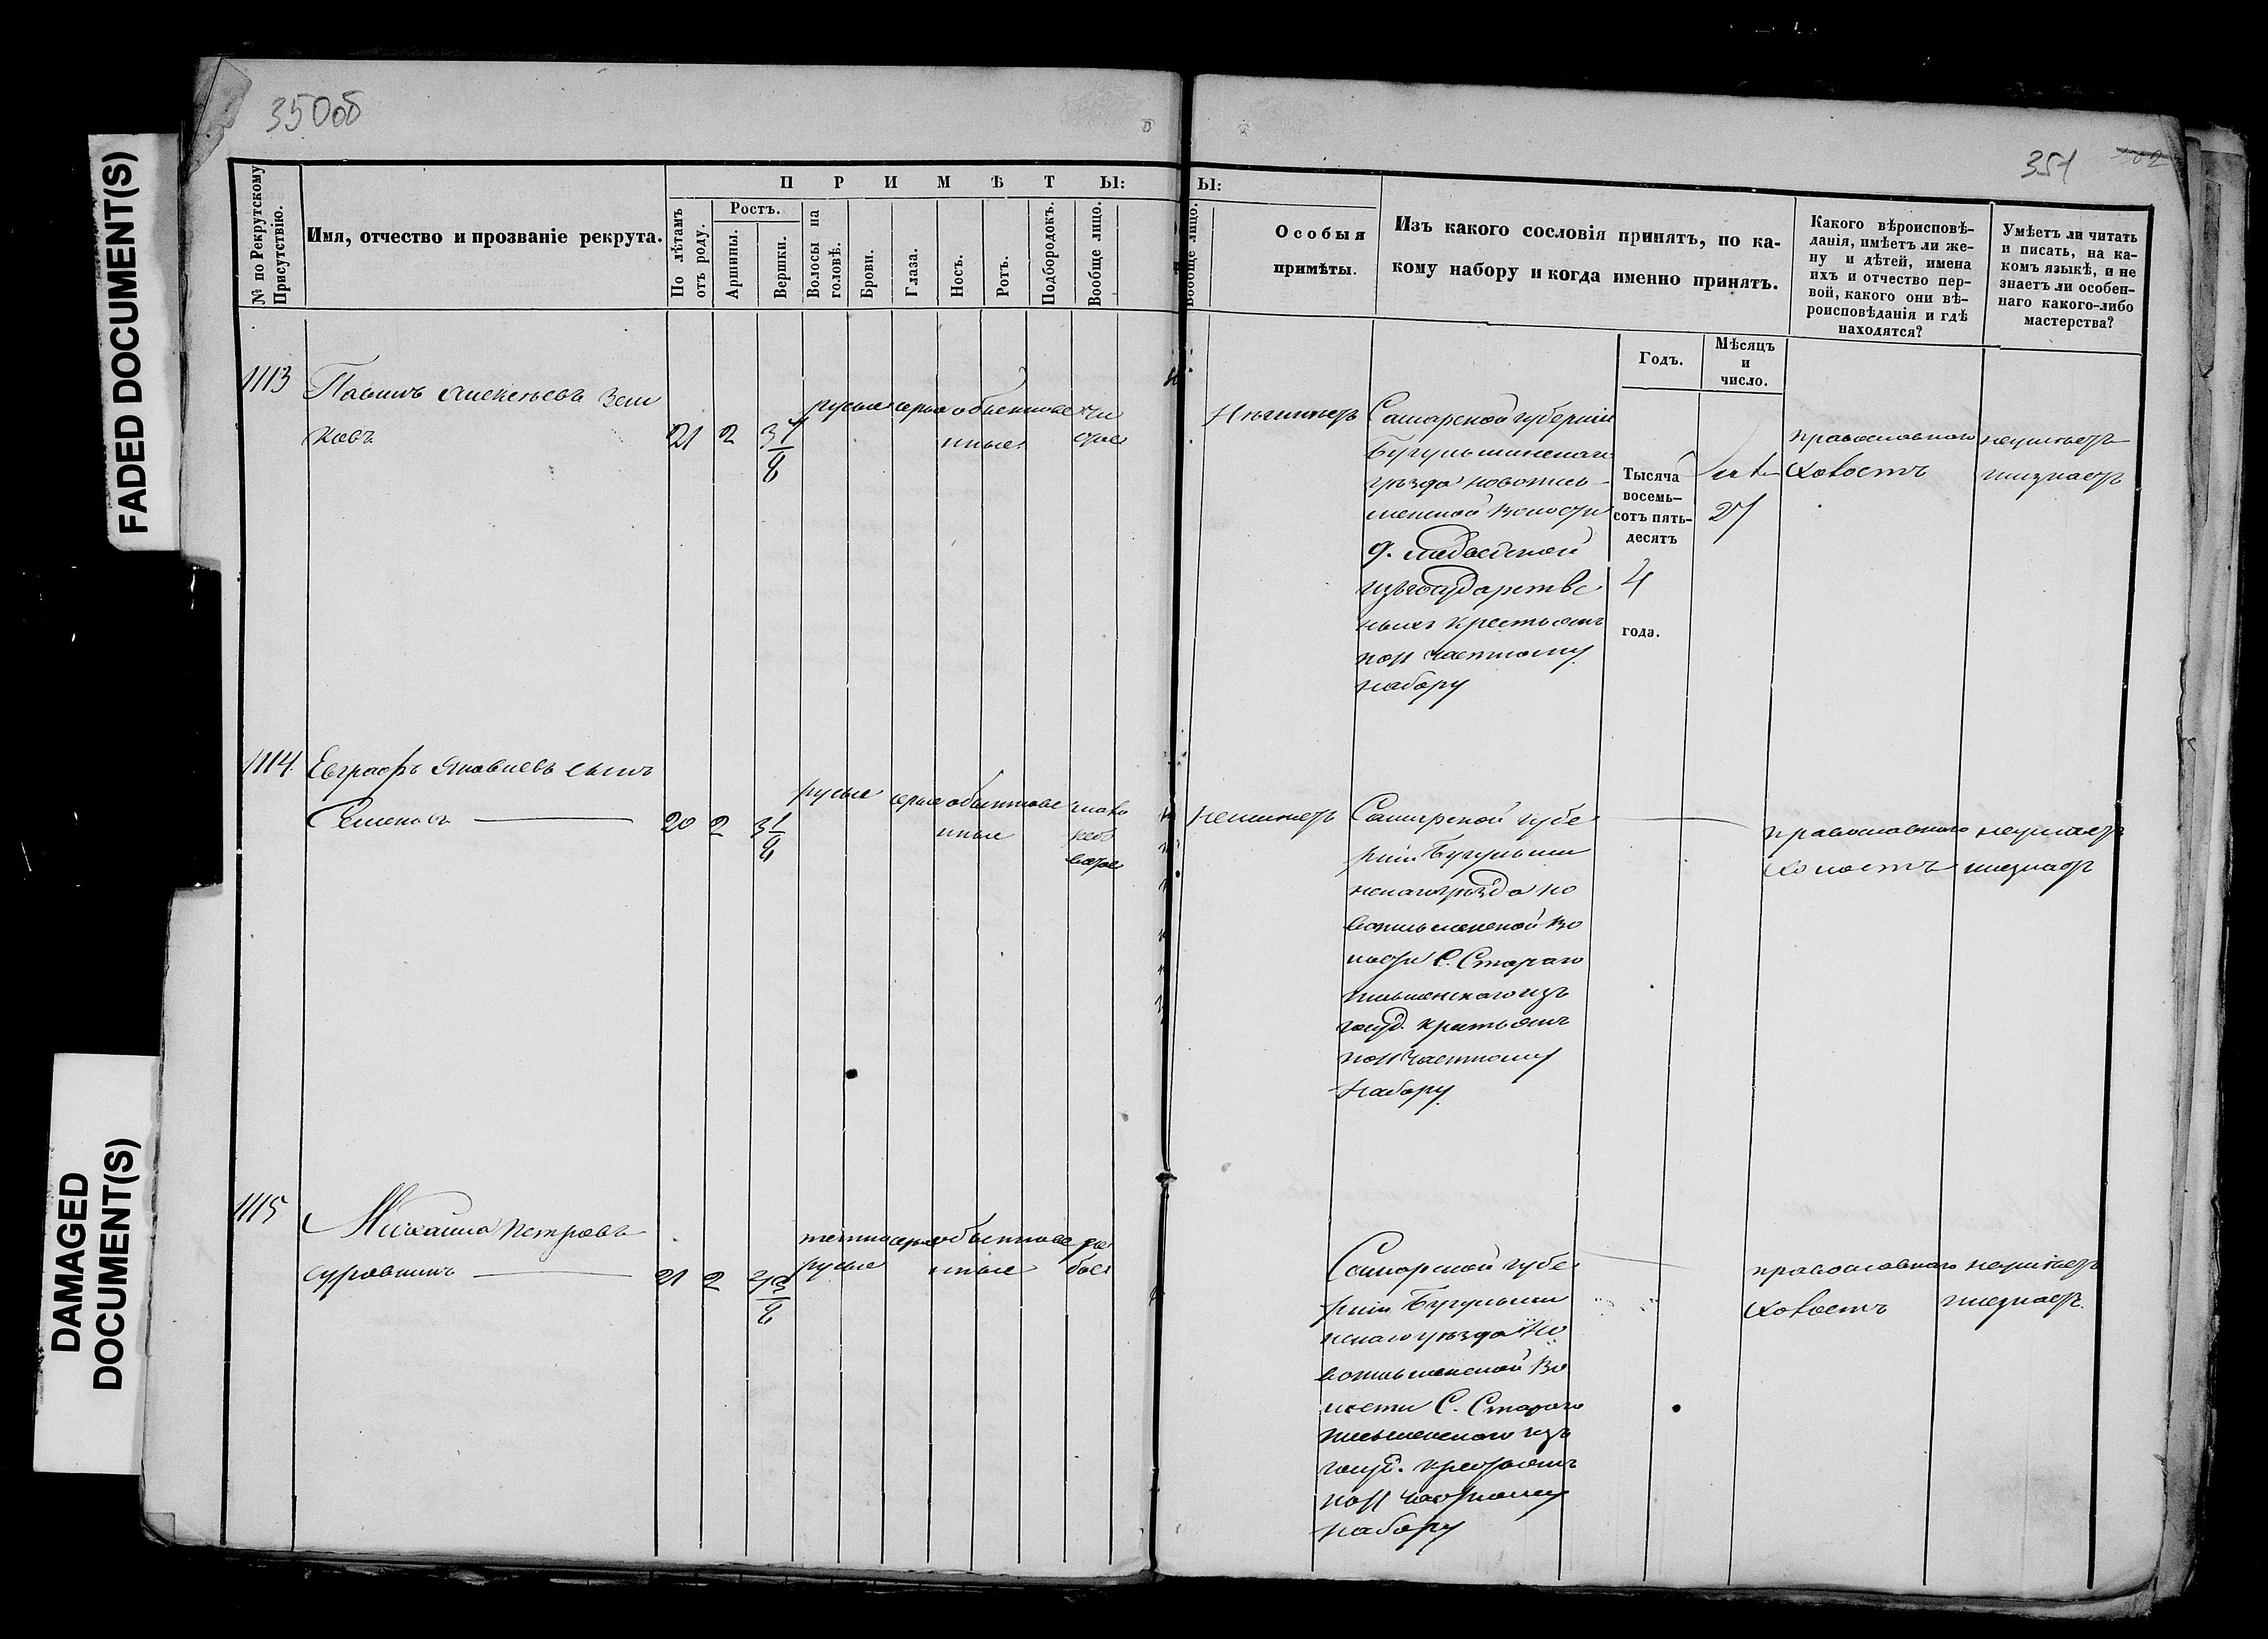 FADED DOCUMENT(S)
DAMAGED
DOCUMENT(S)
350об
351
П Р И М Ѣ Т Ы:
№ по Рекрутскому
Присутствію.
Имя, отчество и прозваніе рекрута.
По лѣтамъ
отъ роду.
Ростъ.
Аршины.
Вершки.
Волосы на
головѣ.
Брови.
Глаза.
Носъ.
Ротъ.
Подбородокъ.
Вообще лицо.
Ы:
Вообще лицо.
Особыя
примѣты.
Изъ какого сословія принятъ, по ка-
кому набору и когда именно принятъ.
Какого вѣроисповѣ-
данія, имѣетъ ли же-
ну и дѣтей, имена
ихъ и отчество пер-
вой, какого они вѣ-
роисповѣданія и гдѣ
находятся?
Умѣетъ ли читать
и писать, на ка-
комъ языкѣ, и не
знаетъ ли особен-
наго какого-либо
мастерства?
Годъ.
Мѣсяцъ
и
число.
1113
Алексѣевъ
21 2 3
русые серые обыкнове
нные
чи
стое
Самарской губерніи
Бугульминскаго
уѣзда новопись-
менской волости
д.
изъ государстве
ныхъ крестьянъ
по 11 частному
набору
Тысяча
восемь-
сотъ пять-
десятъ
4
года.
27
православнаго
холостъ
неумѣетъ
незнаетъ
1114.
Евграфъ Яковлевъ сынъ
Семеновъ
20 2 3 1/8
русые серые обыкнове
нные
неимѣетъ
Самарской губе
рніи Бугульми
нскаго уѣзда но
вописьменской во
лости С. Стараго
письменскаго изъ
госуд. крестьянъ
по 11 частному
набору.
православнаго
холостъ
неумѣетъ
незнаетъ
1115
Михаила Петровъ
Суровкинъ
21 2
темно
русые
серые обыкнове
нные
ря
бое
Самарской губе
рніи Бугульми
нскаго уѣзда Но
вописьменской Во
лости С. Стараго
письменскаго изъ
госуд. крестьянъ
по 11 частному
набору
православнаго
холостъ
неумѣетъ
незнаетъ.